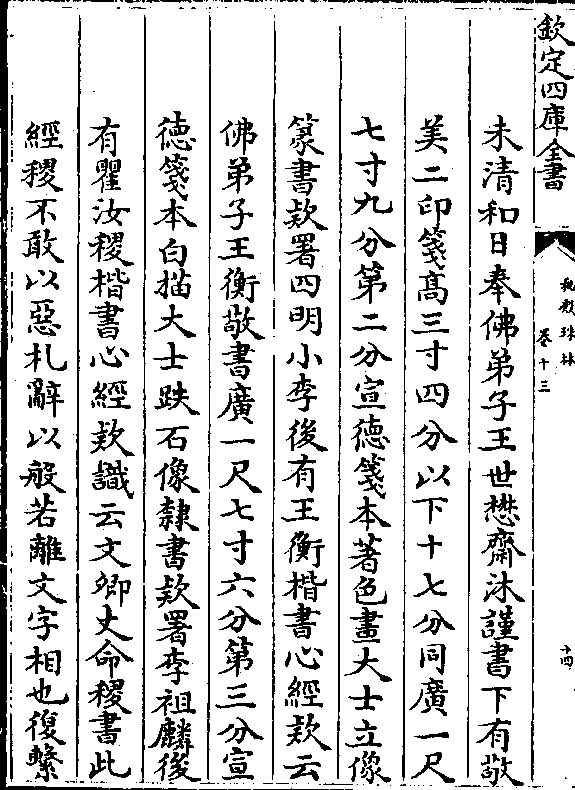 欽定四庫全書
秘殿珠林
卷十三
十四
未清和日奉佛弟子王世懋齋沐謹書下有敬
美二印箋高三寸四分以下十七分同廣一尺
七寸九分第二分宣德箋本著色畫大士立像
篆書款署四明小李後有王衡楷書心經款云
佛弟子王衡敬書廣一尺七寸六分第三分宣
德箋本白描大士趺石像隸書款署李祖麟後
有瞿汝稷楷書心經款識云文卿丈命稷書此
經稷不敢以惡札辭以般若離文字相也復繫